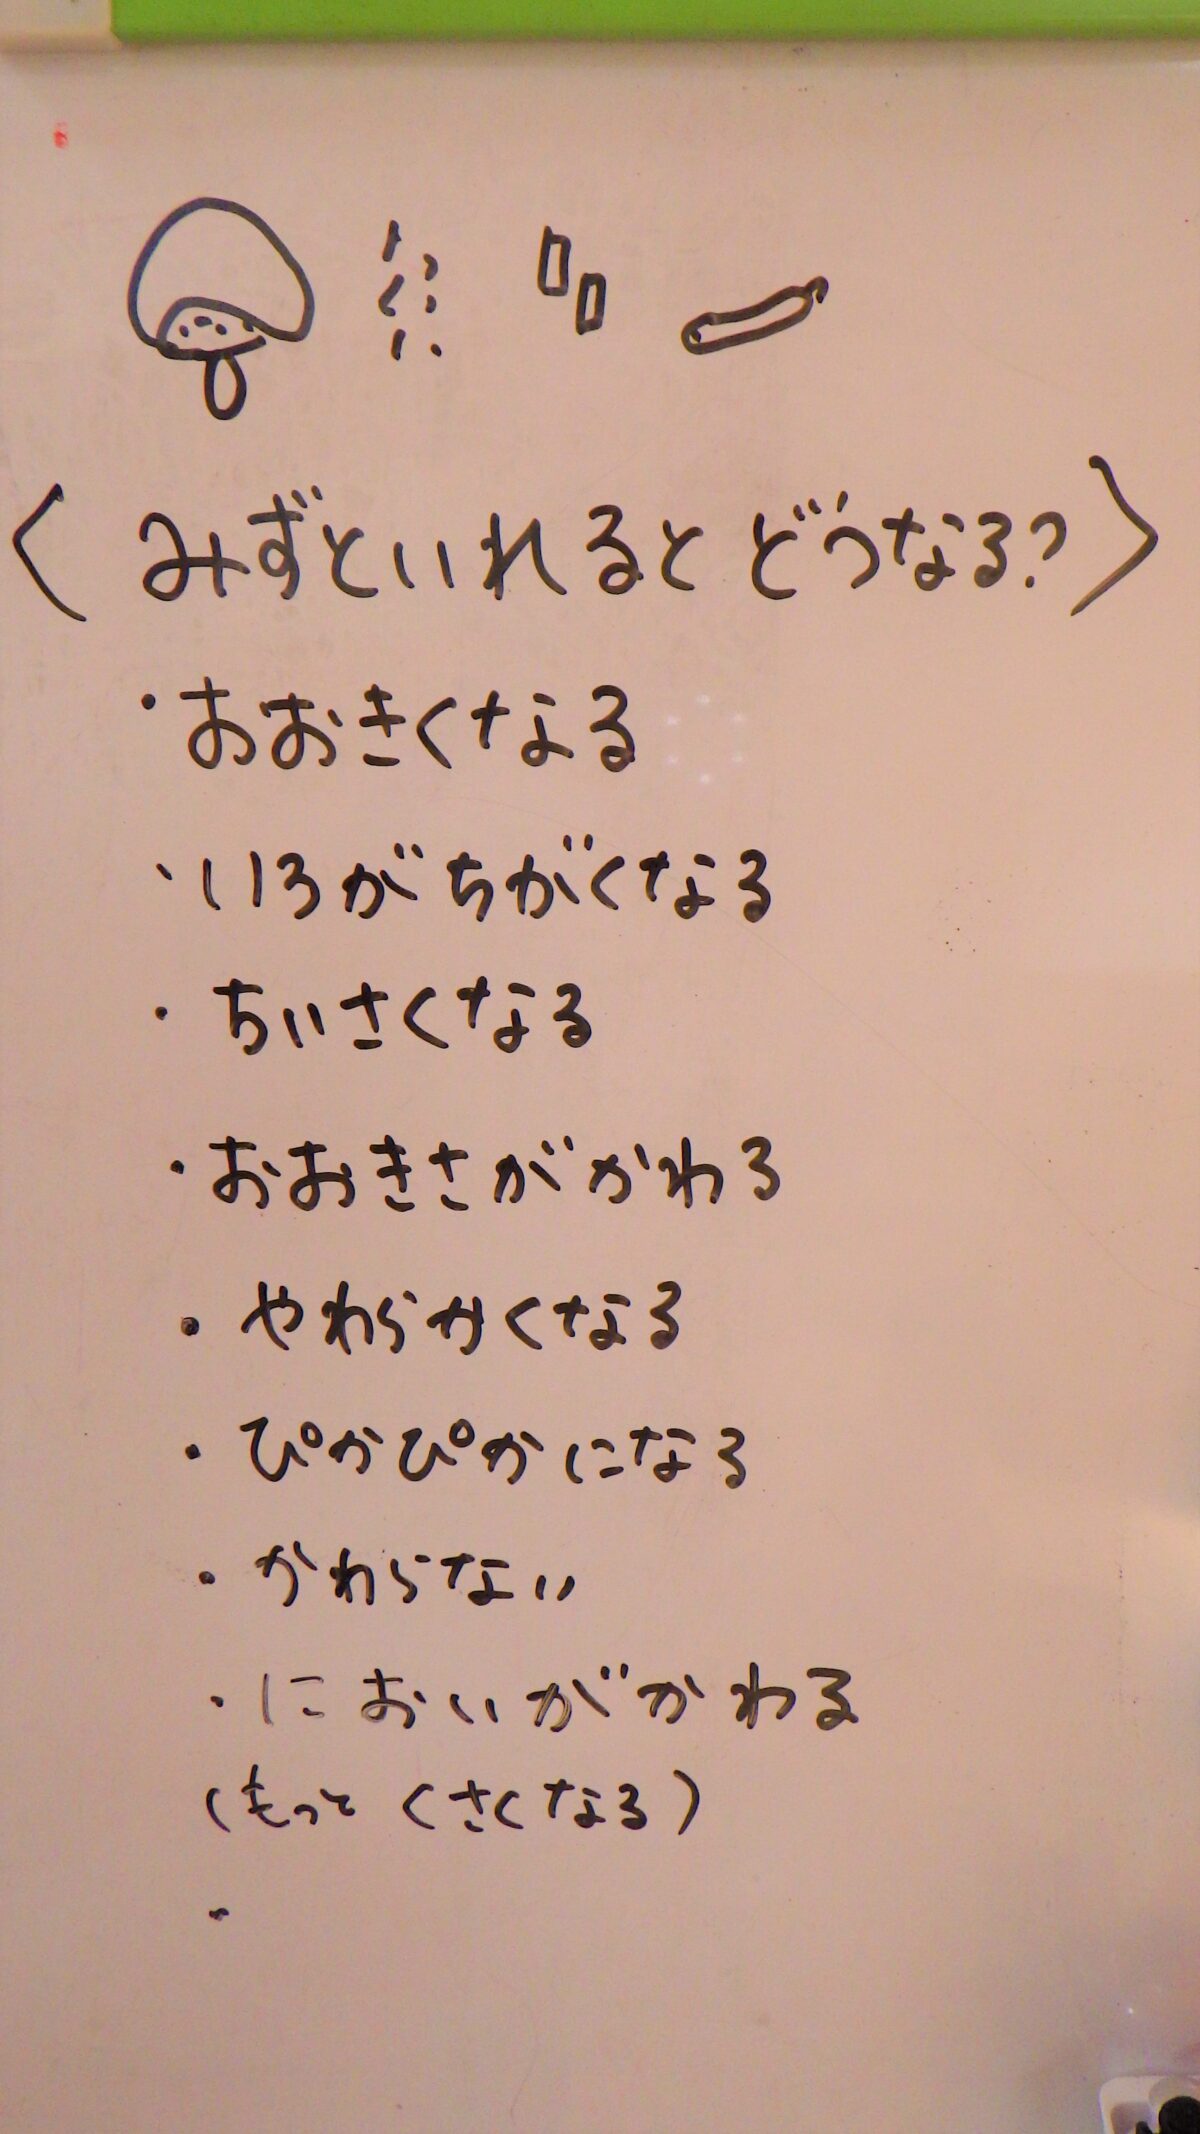 〈 みずといれると どうなる? 〉
・おおきくなる
・いろがちがくなる
・ちいさくなる
・おおきさがかわる
・やわらかくなる
・ぴかぴかになる
・かわらない
・においがかわる
(もっと くさくなる)
・